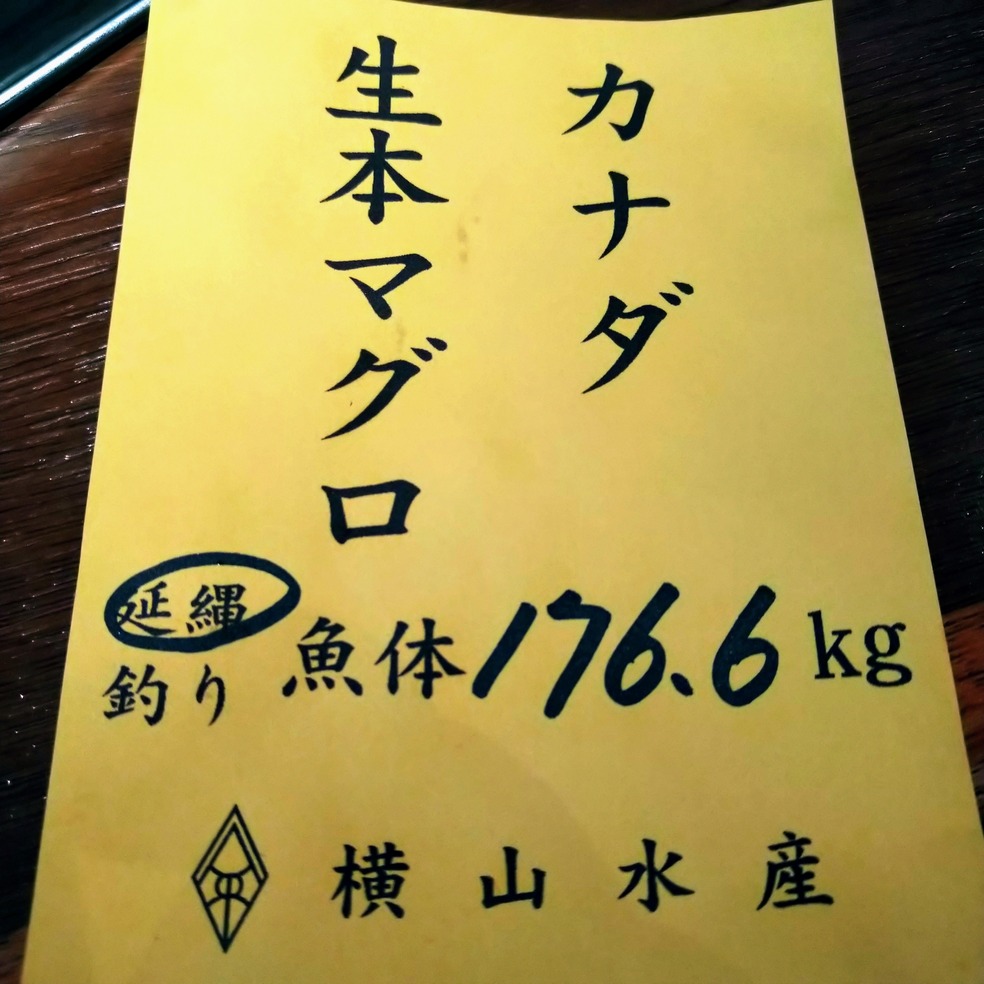 カナダ
生本マグロ
延縄
釣り
魚体176.6kg
横山水産